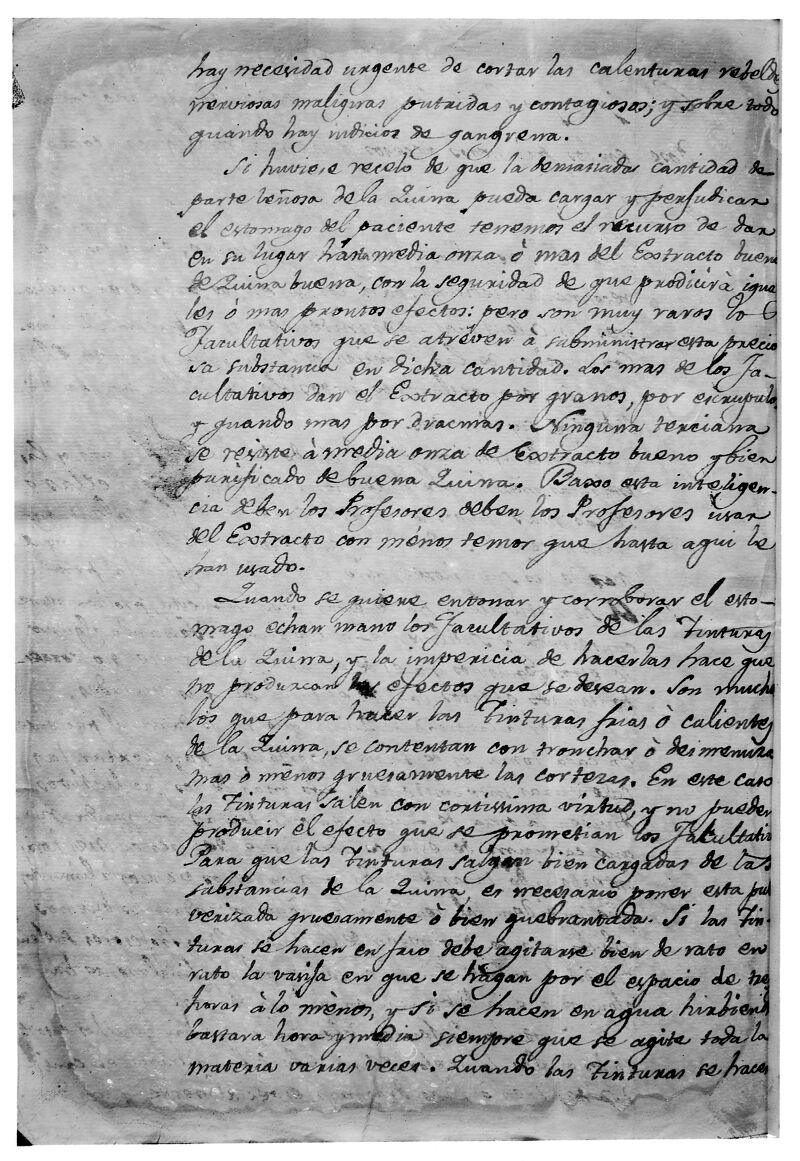 hay necesidad urgente de cortar las calenturas rebelde
nerviosas malignas putridas y contagiosas; y sobre todo
quando hay indicios de gangrena.
Si huviese recelo de que la demasiada cantidad de
parte leñosa de la Quina pueda cargar y perjudicar
el estomago del paciente tenemos el recurso de dar
en su lugar hasta media onza ò mas del Extracto buen
de Quina buena, con la seguridad de que producirà igua
les ó mas prontos efectos: pero son muy raros lo
Facultativos que se atréven à subministrar esta precio
sa substancia en dicha cantidad. Los mas de los Fa-
cultativos dan el Extracto por granos, por escrupulo,
y quando mas por dracmas. Ninguna terciana
se resiste à media onza de Extracto bueno y bien
purificado de buena Quina. Baxo esta inteligen-
cia deben los Profesores deben los Profesores usar
del Extracto con ménos temor que hasta aqui le
han usado.
Quando se quiere entonar y corroborar el esto-
mago echan mano los Facultativos de las Tinturas
de la Quina, y la impericia de hacerlas hace que
no produzcan los efectos que se desean. Son mucho
los que para hacer las Tinturas frias ò calientes
de la Quina, se contentan con tronchar ò desmenuza
mas ò ménos gruesamente las cortezas. En este caso
las Tinturas salen con cortissima virtud, y no pueden
producir el efecto que se prometian los Facultativ
Para que las Tinturas salgan bien cargadas de las
substancias de la Quina es necesario poner esta pul
verizada gruesamente ò bien quebrantada. Si las Tin-
turas se hacen en frio debe agitarse bien de rato en
rato la vasija en que se hagan por el espacio de tre
horas à lo ménos, y si se hacen en agua hirbiend
bastara hora y media siempre que se agite toda la
materia varias veces. Quando las Tinturas se hacen